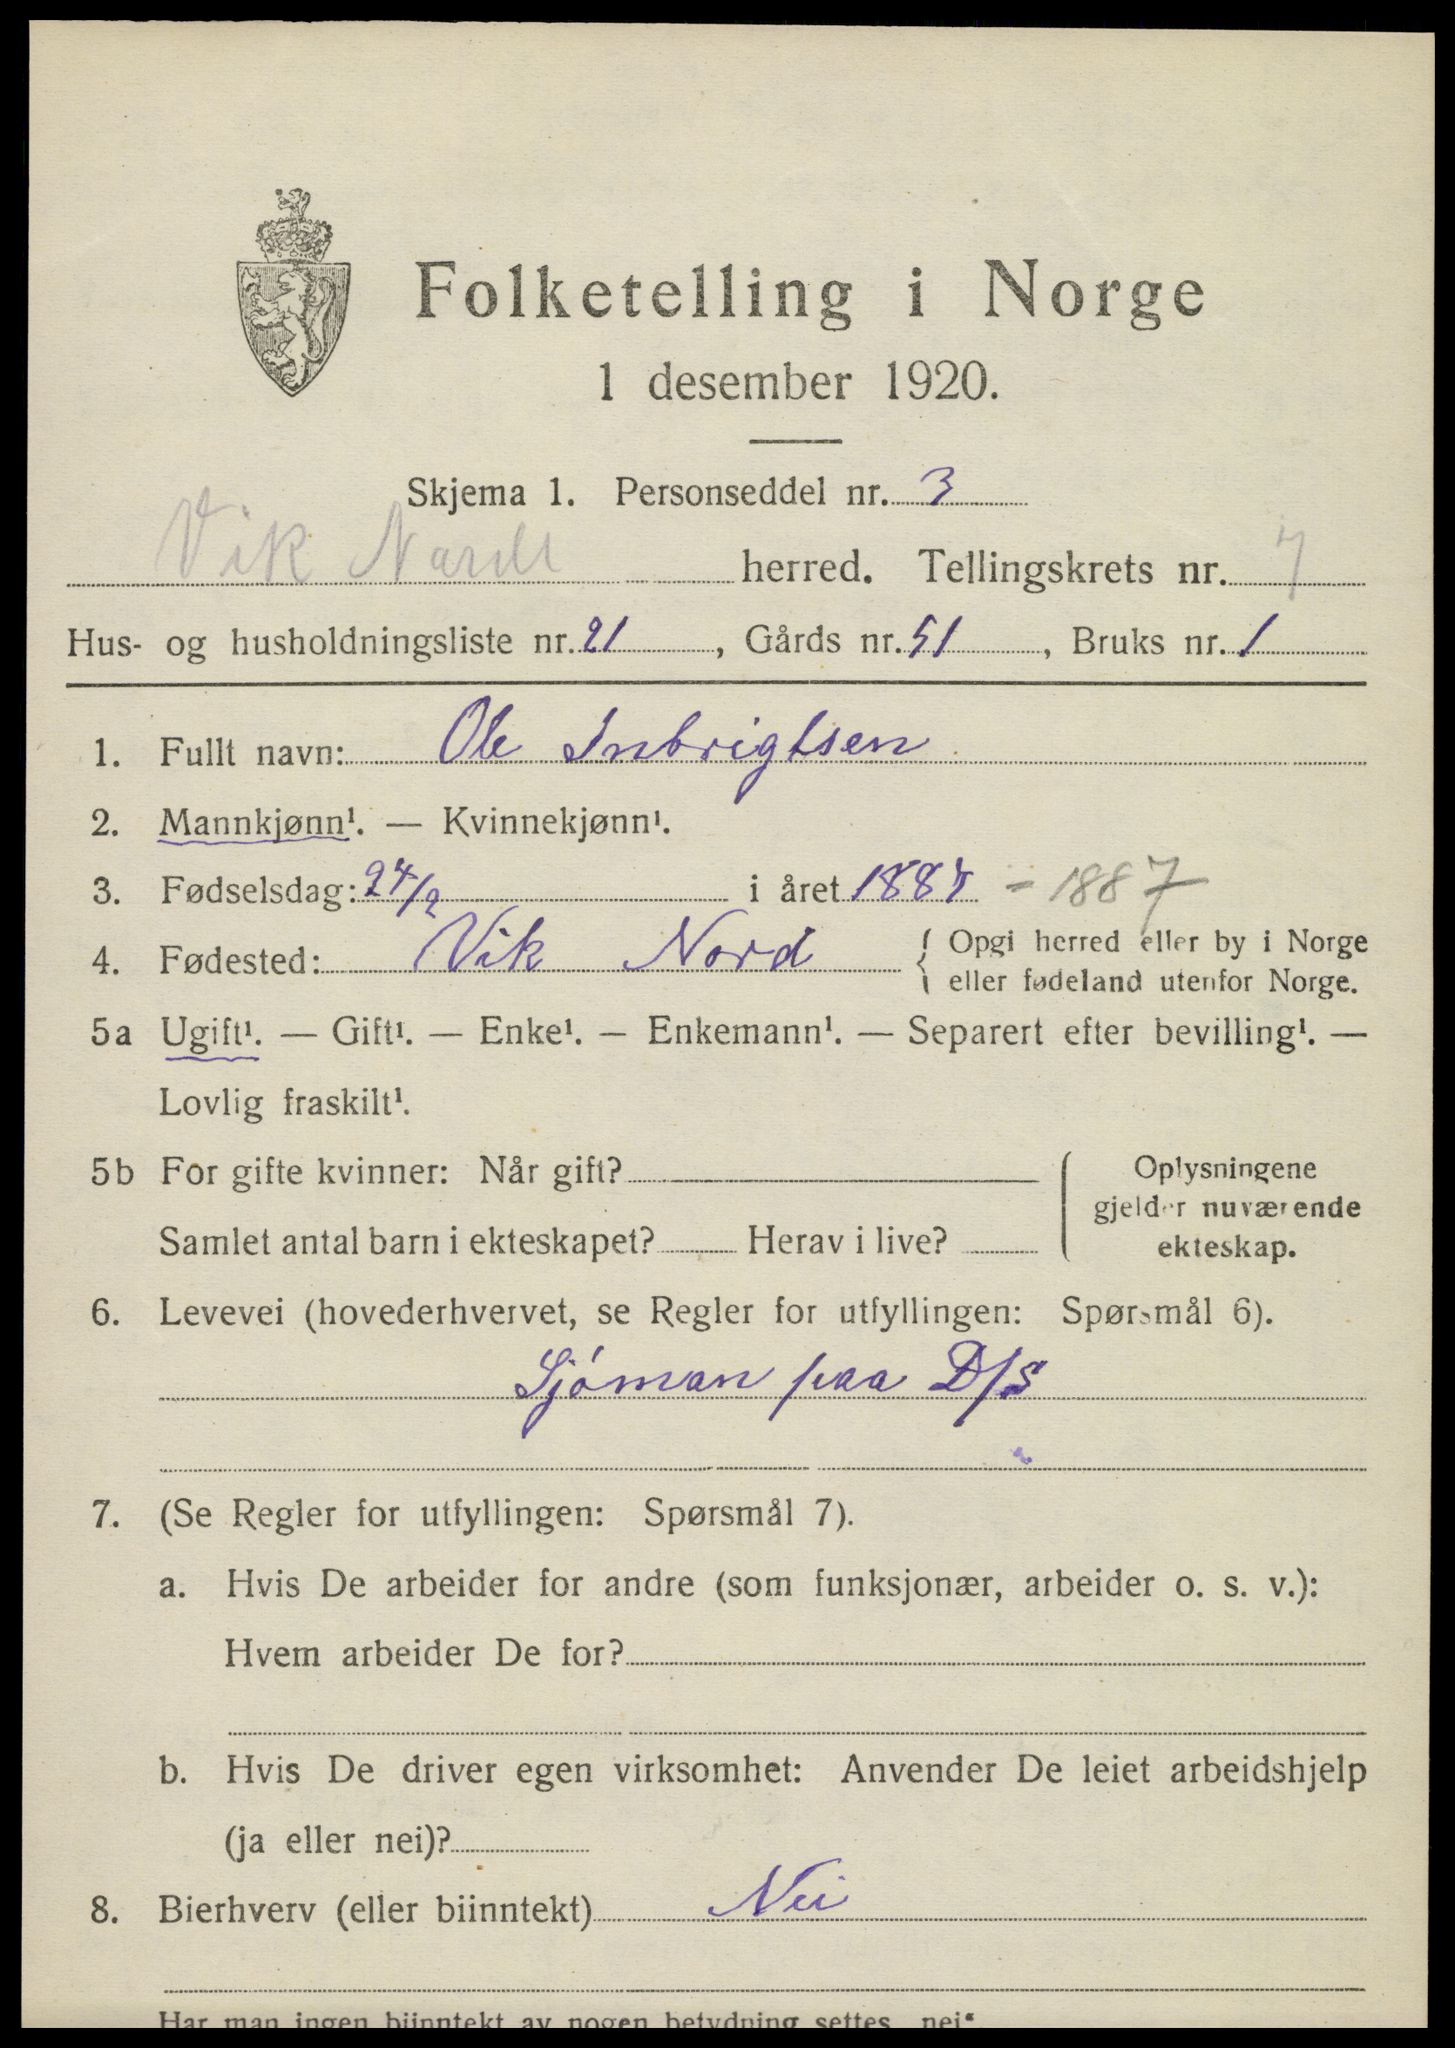 Folketelling i Norge
1 desember 1920.
Skjema 1. Personseddel nr. 3
Vik Nord herred. Tellingskrets nr. 7
Hus- og husholdningsliste nr. 21, Gårds nr. 51, Bruks nr. 1
1. Fullt navn: Ole Inbrigtsen
2. Mannkjønn¹. — Kvinnekjønn¹.
3. Fødselsdag: 24/2 i året 1887 = 1887
4. Fødested: Vik Nord { Opgi herred eller by i Norge
eller fødeland utenfor Norge.
5a Ugift¹. — Gift¹. — Enke¹. — Enkemann¹. — Separert efter bevilling¹. —
Lovlig fraskilt¹.
5b For gifte kvinner: Når gift? Oplysningene
gjelder nuværende
Samlet antal barn i ekteskapet? Herav i live? ekteskap.
6. Levevei (hovederhvervet, se Regler for utfyllingen: Spørsmål 6).
Sjóman paa D/S
7. (Se Regler for utfyllingen: Spørsmål 7).
a. Hvis De arbeider for andre (som funksjonær, arbeider o. s. v.):
Hvem arbeider De for?
b. Hvis De driver egen virksomhet: Anvender De leiet arbeidshjelp
(ja eller nei)?
8. Bierhverv (eller biinntekt) Nei
Har man ingen biinntekt av nogen betydning settes „nei“